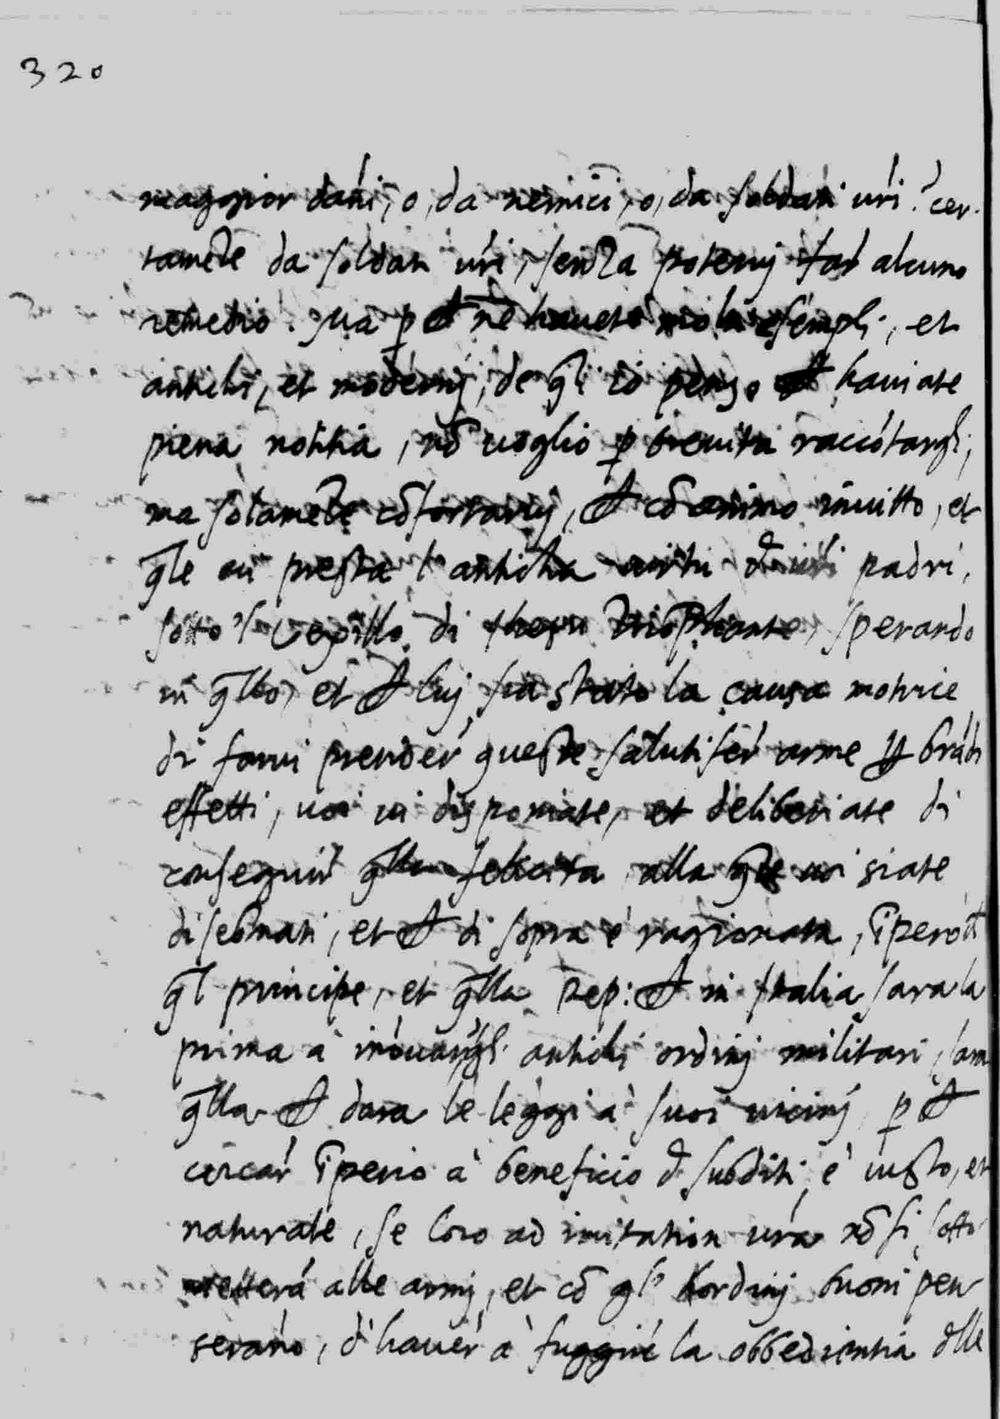 320
maggior dáni, o, da nemici, o, da soldati vr̃i? cer-
tamẽte da soldati vr̃i, senza potervj far alcuno
remedio. Ma p ch̃ ne havete molti esempli, et
antichi, et modernj, de q̃li io penso ch̃ haviate
piena notitia, nõ voglio p brevita raccõtargli,
ma solamẽte cõfortarvj, ch̃ cõ animo invitto, et
q̃le vi presta l'anticha virtu d vr̃i padri,
sotto 'l vexillo di Triophante, sperando
in q̃llo, et ch̃ luj sia stato la causa motrice
di farvi prender queste salutifer arme grãdi
effetti, voi vi disponiate, et deliberiate di
conseguir q̃lla felicita alla q̃le voi siate
disegnati, et ch̃ di sopra è ragionata, ĩperoch̃
q̃l principe, et q̃lla Rep: ch̃ in Italia sara la
prima à inovargli antichi ordinj militari, sara
q̃lla ch̃ dara le leggi à suoi vicinj p ch̃
cercar ĩperio à beneficio d subditi, è iusto, et
naturale, se loro ad imitation vr̃a nõ si sotto
metterá alle armj, et cõ gl' hordinj buoni pen
serãno, d'haver à fuggire la obbedientia dlle